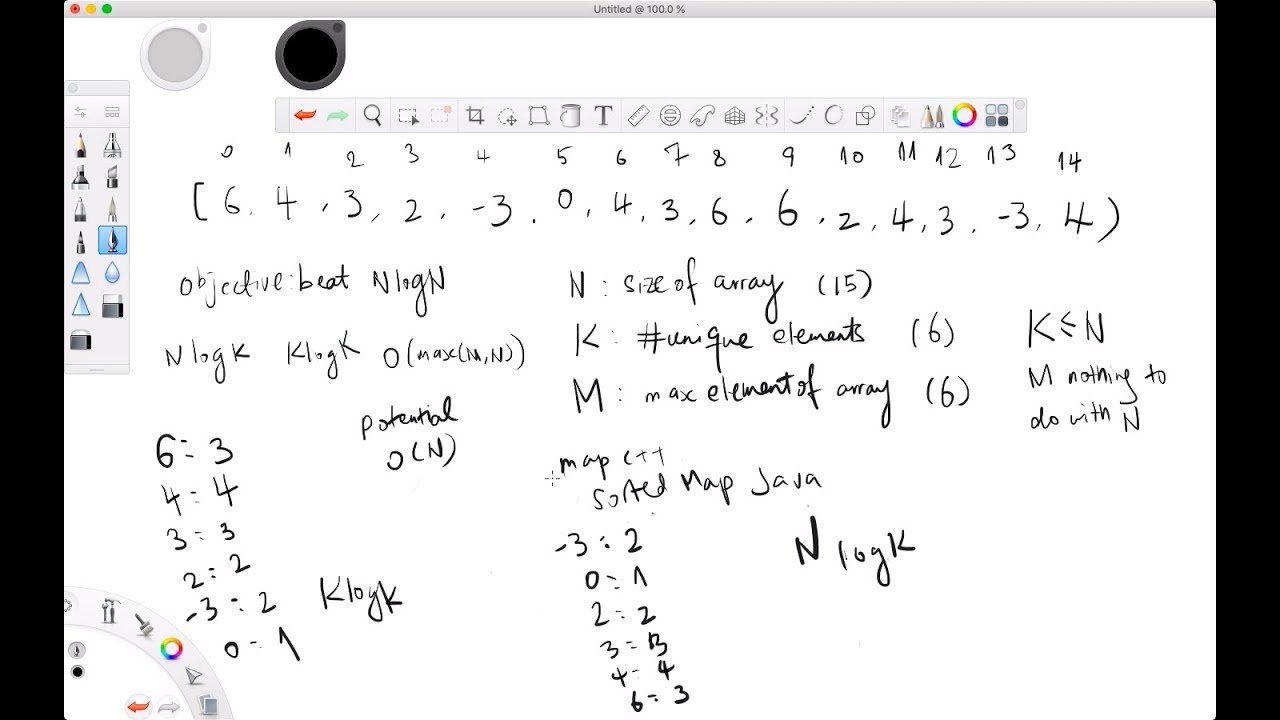 Untitled @ 100.0 %
T
0 1 2 3 4 5 6 7 8 9 10 11 12 13 14
[6, 4, 3, 2, -3, 0, 4, 3, 6, 6, 2, 4, 3, -3, 4)
objective: beat NlogN
N : size of array (15)
K : #unique elements (6) K ≤ N
NlogK KlogK O(max(M,N))
M : max element of array (6)
M nothing to
do with N
potential
O(N)
6 = 3
4 = 4
3 = 3
2 = 2
-3 = 2
0 = 1
KlogK
map c++
Sorted Map Java
-3 : 2
0 = 1
2 = 2
3 = 3
4 = 4
6 = 3
NlogK